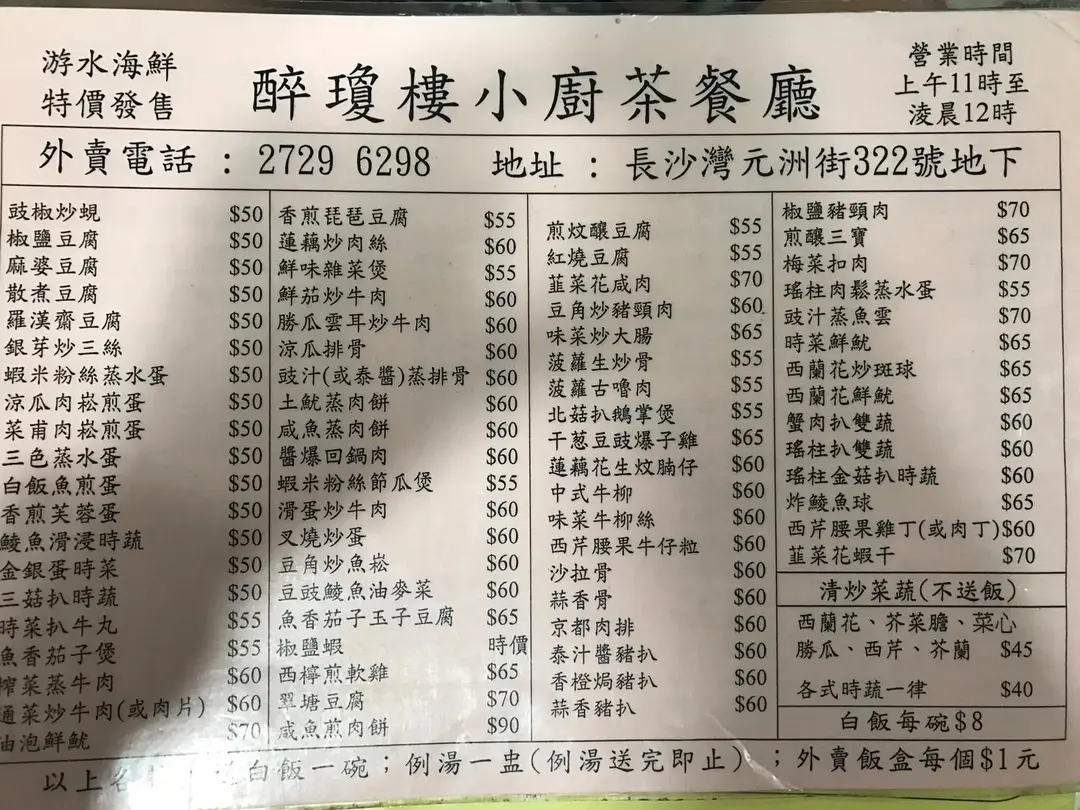 游水海鮮
特價發售
醉瓊樓小廚茶餐廳
營業時間
上午11時至
淩晨12時
外賣電話 : 2729 6298 地址 : 長沙灣元洲街322號地下
豉椒炒蜆 $50
椒鹽豆腐 $50
麻婆豆腐 $50
散煮豆腐 $50
羅漢齋豆腐 $50
銀芽炒三絲 $50
蝦米粉絲蒸水蛋 $50
涼瓜肉崧煎蛋 $50
菜甫肉崧煎蛋 $50
三色蒸水蛋 $50
白飯魚煎蛋 $50
香煎芙蓉蛋 $50
鯪魚滑浸時蔬 $50
金銀蛋時菜 $50
三菇扒時蔬 $50
時菜扒牛丸 $55
魚香茄子煲 $55
榨菜蒸牛肉 $60
通菜炒牛肉(或肉片) $60
油泡鮮魷 $70
香煎琵琶豆腐 $55
蓮藕炒肉絲 $60
鮮味雜菜煲 $55
鮮茄炒牛肉 $60
勝瓜雲耳炒牛肉 $60
涼瓜排骨 $60
豉汁(或泰醬)蒸排骨 $60
土魷蒸肉餅 $60
咸魚蒸肉餅 $60
醬爆回鍋肉 $60
蝦米粉絲節瓜煲 $55
滑蛋炒牛肉 $60
叉燒炒蛋 $60
豆角炒魚崧 $60
豆豉鯪魚油麥菜 $60
魚香茄子玉子豆腐 $65
椒鹽蝦 時價
西檸煎軟雞 $65
翠塘豆腐 $70
咸魚煎肉餅 $90
煎炆釀豆腐 $55
紅燒豆腐 $55
韮菜花咸肉 $70
豆角炒豬頸肉 $60
味菜炒大腸 $65
菠蘿生炒骨 $55
菠蘿古嚕肉 $55
北菇扒鵝掌煲 $55
干葱豆豉爆子雞 $65
蓮藕花生炆腩仔 $60
中式牛柳 $60
味菜牛柳絲 $60
西芹腰果牛仔粒 $60
沙拉骨 $60
蒜香骨 $60
京都肉排 $60
泰汁醬豬扒 $60
香橙焗豬扒 $60
蒜香豬扒 $60
椒鹽豬頸肉 $70
煎釀三寶 $65
梅菜扣肉 $70
瑤柱肉鬆蒸水蛋 $55
豉汁蒸魚雲 $70
時菜鮮魷 $65
西蘭花炒斑球 $65
西蘭花鮮魷 $65
蟹肉扒雙蔬 $60
瑤柱扒雙蔬 $60
瑤柱金菇扒時蔬 $60
炸鯪魚球 $65
西芹腰果雞丁(或肉丁) $60
韮菜花蝦干 $70
清炒菜蔬(不送飯)
西蘭花、芥菜膽、菜心
勝瓜、西芹、芥蘭 $45
各式時蔬一律 $40
白飯每碗$8
以上各 白飯一碗；例湯一盅(例湯送完即止)；外賣飯盒每個$1元